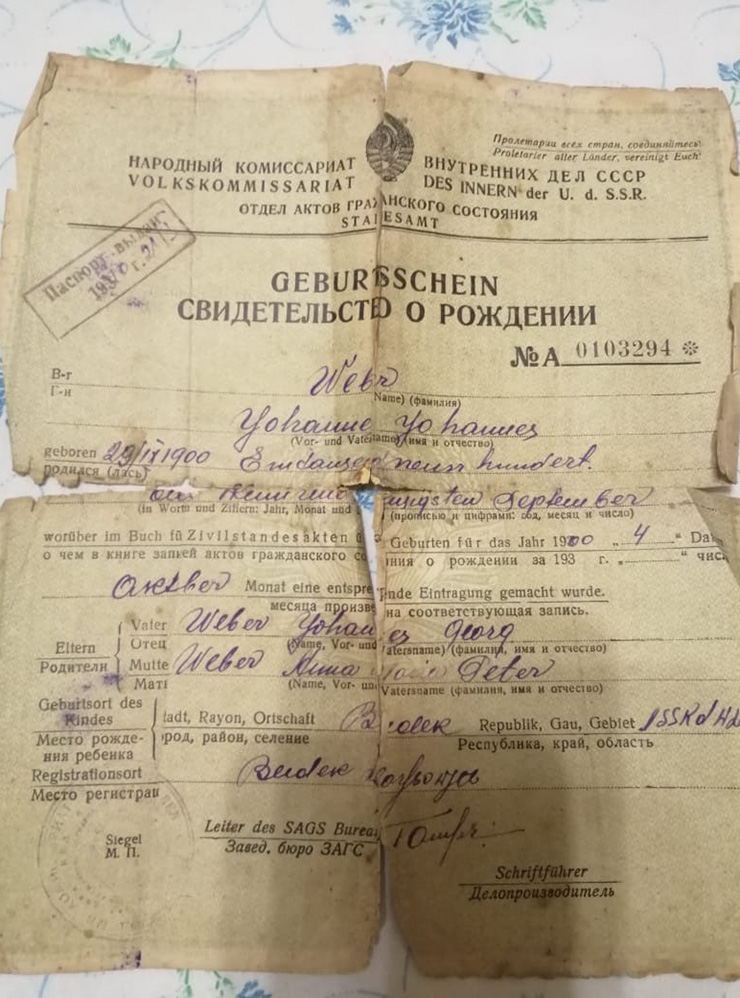 Пролетарии всех стран, соединяйтесь!
Proletarier aller Länder, vereinigt Euch!
НАРОДНЫЙ КОМИССАРИАТ ВНУТРЕННИХ ДЕЛ СССР
VOLKSKOMMISSARIAT DES INNERN der U. d. S.S.R.
ОТДЕЛ АКТОВ ГРАЖДАНСКОГО СОСТОЯНИЯ
STANDESAMT
Паспорт выдан
GEBURTSSCHEIN
СВИДЕТЕЛЬСТВО О РОЖДЕНИИ
№ А 0103294
В-г Weber
Г-н Name) (фамилия)
Yohannes
(Vor- und Vatername) (имя и отчество)
geboren 29/IX 1900 neun hundert.
родился (лась)
September
(in Worten und Ziffern: Jahr, Monat und (прописью и цифрами: год, месяц и число)
worüber im Buch fü Zivilstandesakten ü Geburten für das Jahr 1900 „ 4 “ Da
о чем в книге записей актов гражданского состояния о рождении за 193 г. „ “ чис
Oktober Monat eine entspre nde Eintragung gemacht wurde.
месяца произве на соответствующая запись.
Eltern Vater Weber Yohannes Georg
Отец (Name, Vor- und Vatersname) (фамилия, имя и отчество)
Родители Mutte Weber Anna Peter
Мать (Name, Vor- und Vatersname (фамилия, имя и отчество)
Geburtsort des Kindes tadt, Rayon, Ortschaft Republik, Gau, Gebiet
Место рождения ребенка ород, район, селение Республика, край, область
Registrationsort Beidek
Место регистрац
Siegel
М. П.
Leiter des SAGS Bureau
Завед. бюро ЗАГС
Schriftführer
Делопроизводитель